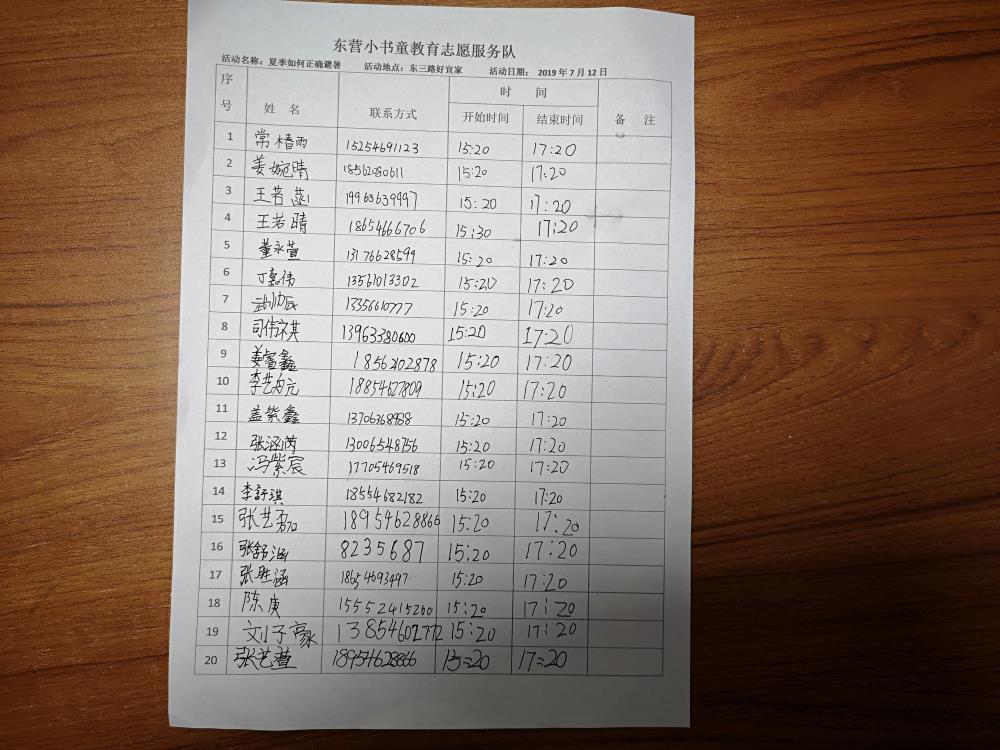 东营小书童教育志愿服务队
活动名称：夏季如何正确避暑 活动地点：东三路好宜家 活动日期： 2019 年 7 月 12 日
序号 姓 名 联系方式 时 间 备 注
开始时间 结束时间
1 常椿雨 15254691123 15:20 17:20
2 姜婉晴 18562080611 15:20 17:20
3 王若 19963639997 15:20 17:20
4 王若晴 18654666706 15:30 17:20
5 董永萱 13176628599 15:20 17:20
6 丁嘉伟 13561013302 15:20 17:20
7 13356610777 15:20 17:20
8 司伟祺 13963380600 15:20 17:20
9 姜睿鑫 18562102878 15:20 17:20
10 李艺 18854627809 15:20 17:20
11 盖紫鑫 15:20 17:20
12 张涵芮 13006548756 15:20 17:20
13 冯紫宸 17705469518 15:20 17:20
14 李舒琪 18554682182 15:20 17:20
15 张艺 18954628866 15:20 17:20
16 张舒涵 8235687 15:20 17:20
17 张胜涵 15:20 17:20
18 陈庚 15552415200 15:20 17:20
19 刘子豪 13854602772 15:20 17:20
20 张艺萱 18954628866 15=20 17=20